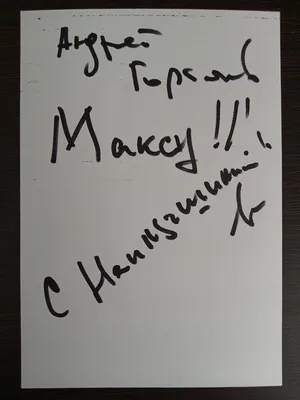 Андрей
Горохов
Максу!!!
С Наилучшими!